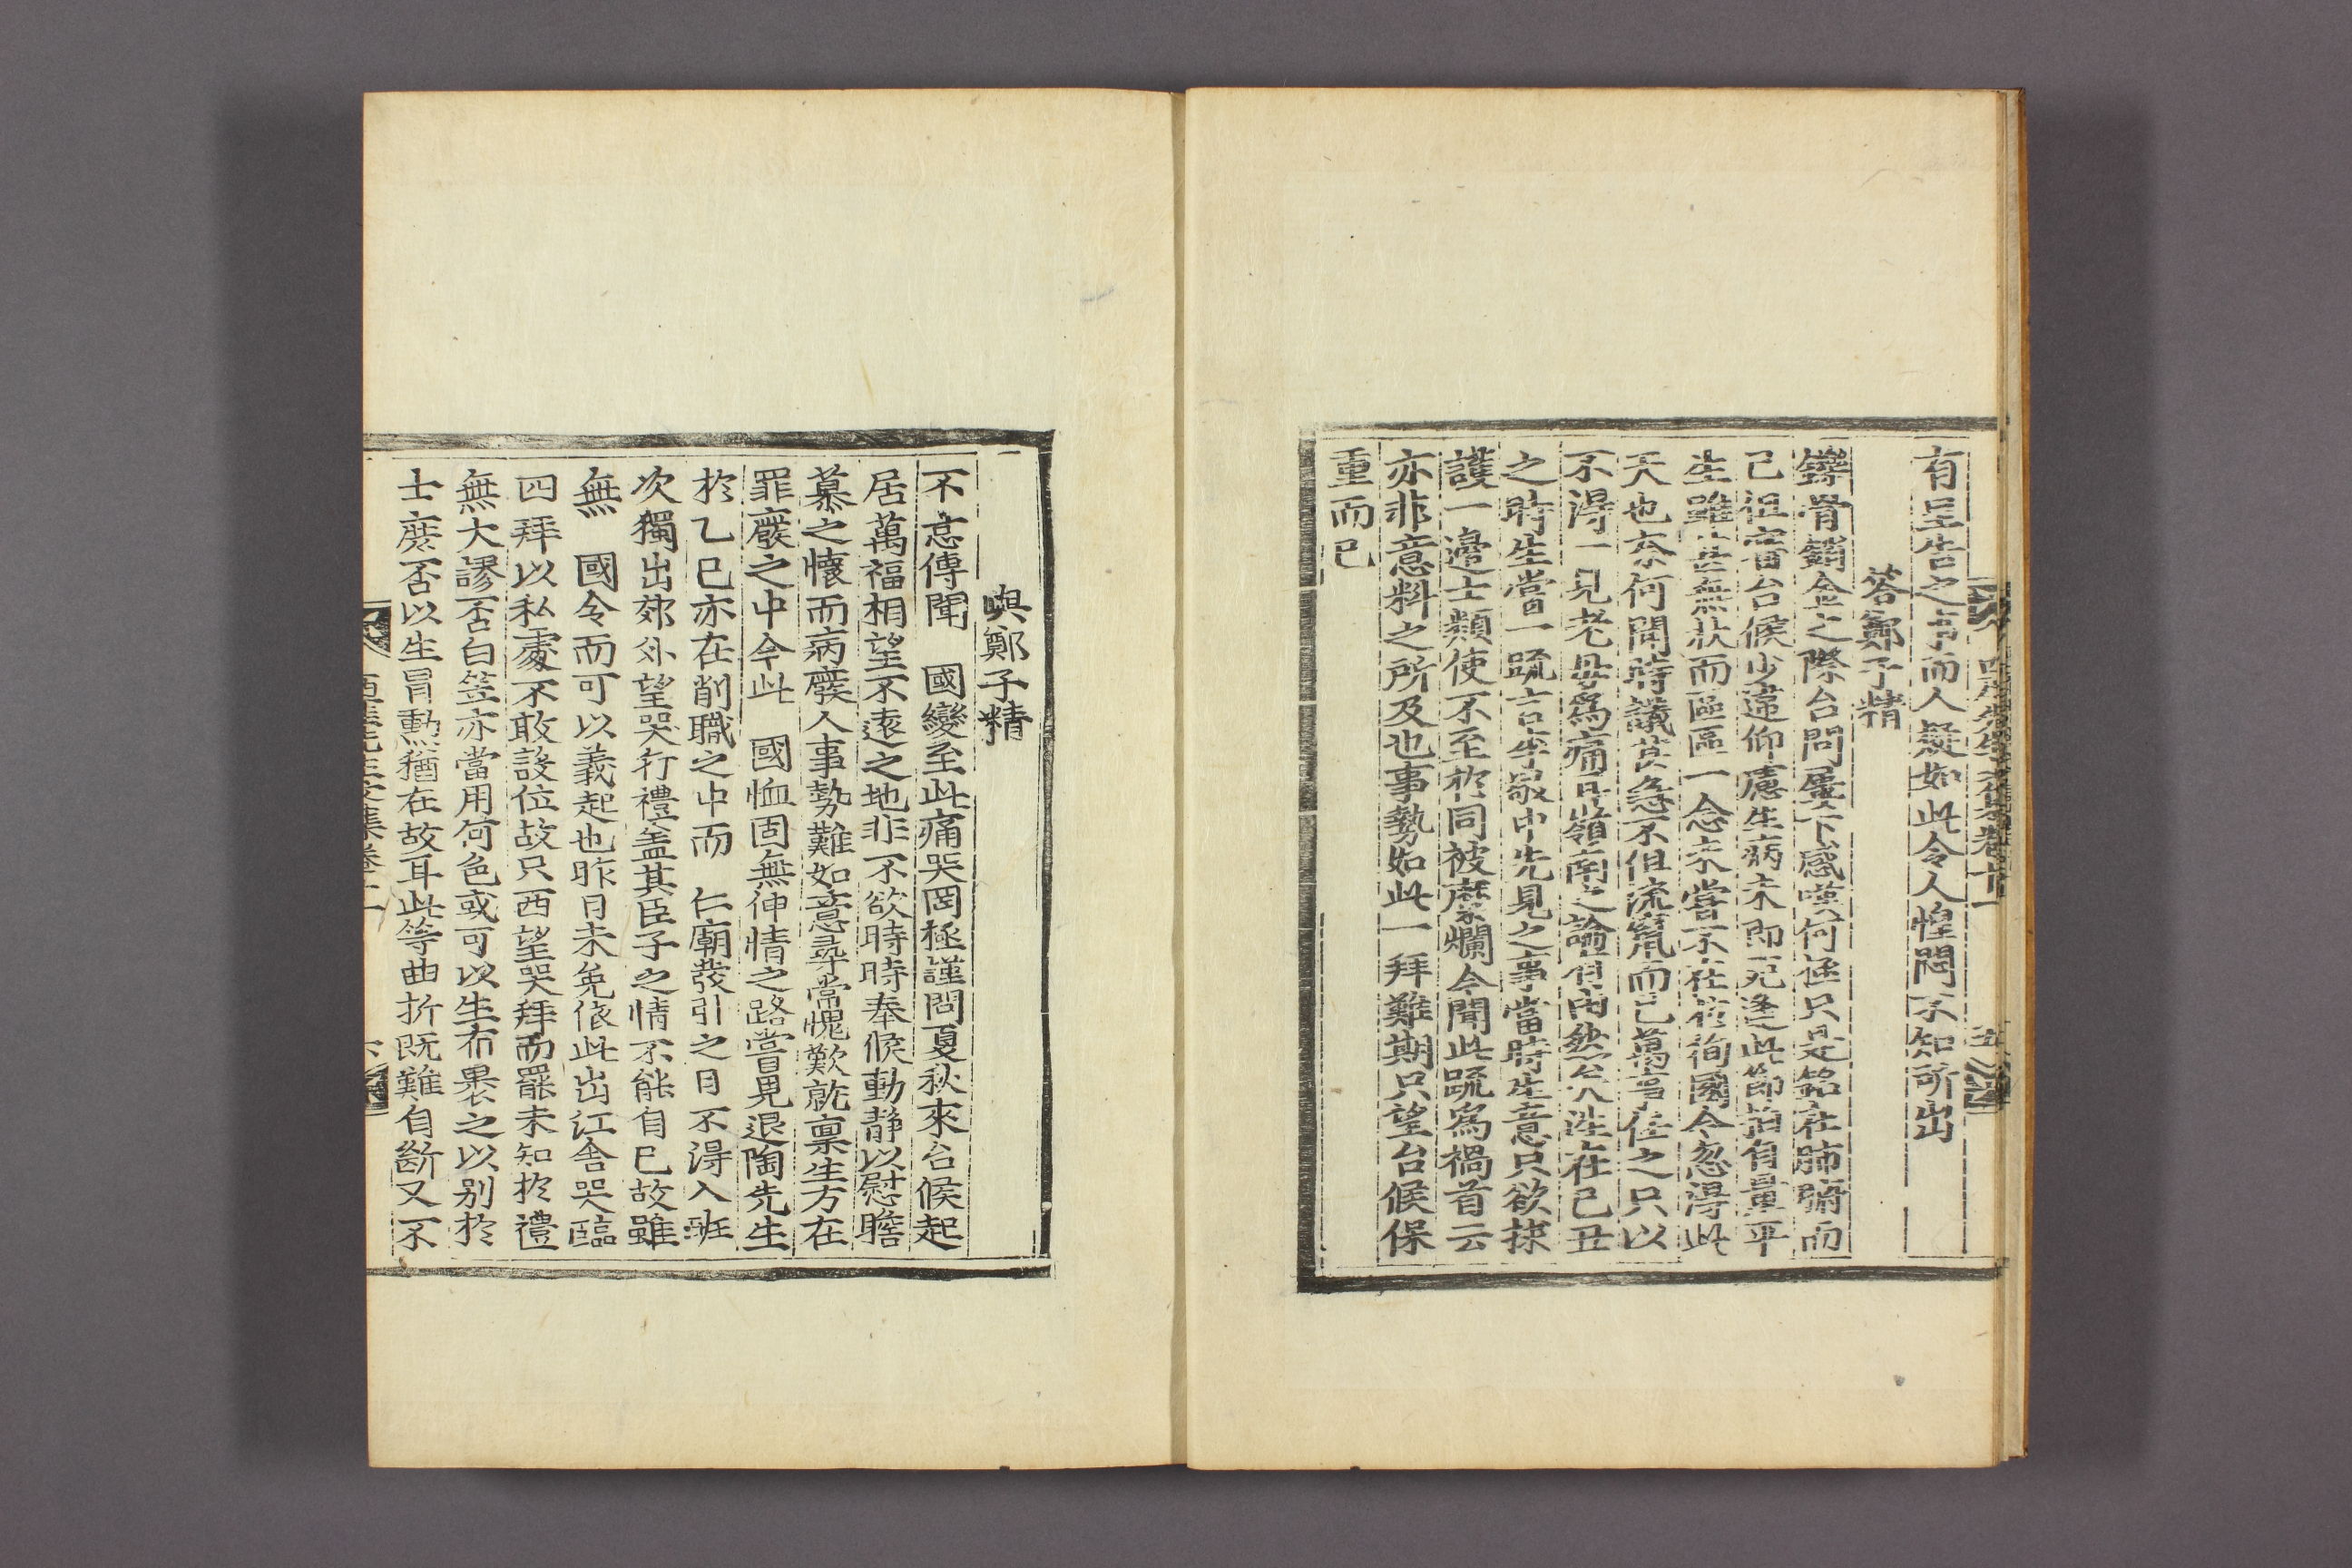 有呈告之事而人疑如此令人惶悶不知所出
答鄭子精
鑠骨銷金之際台問屢下感嘆何極只是銘在肺腑而
已徂宵台候少違仰慮生病未卽死逢此節拍自量平
生雖甚無狀而區區一念未嘗不在徇國今忽得此
天也柰何聞時議甚急不但流竄而已萬事任之只以
不得一見老母爲痛耳嶺南之論
在己丑
之時生嘗一疏言李敬中先見之事當時生意只欲捄
護一邊士類使不至於同被糜爛今聞此疏爲禍首云
亦非意料之所及也事勢如此一拜難期只望台候保
重而已
與鄭子精
不意傳聞 國變至此痛哭罔極謹問夏秋來台候起
居萬福相望不遠之地非不欲時時奉候動靜以慰瞻
慕之懷而病廢人事勢難如意尋常愧歎就稟生方在
罪廢之中今此 國恤固無伸情之路嘗見退陶先生
於乙巳亦在削職之中而 仁廟發引之日不得入班
次獨出郊外望哭行禮盖其臣子之情不能自已故雖
無 國令而可以義起也昨日未免依此出江舍哭臨
四拜以私處不敢設位故只西望哭拜而罷未知於禮
無大謬否白笠亦當用何色或可以生布裹之以別於
士庶否以生冒勳猶在故耳此等曲折旣難自斷又不